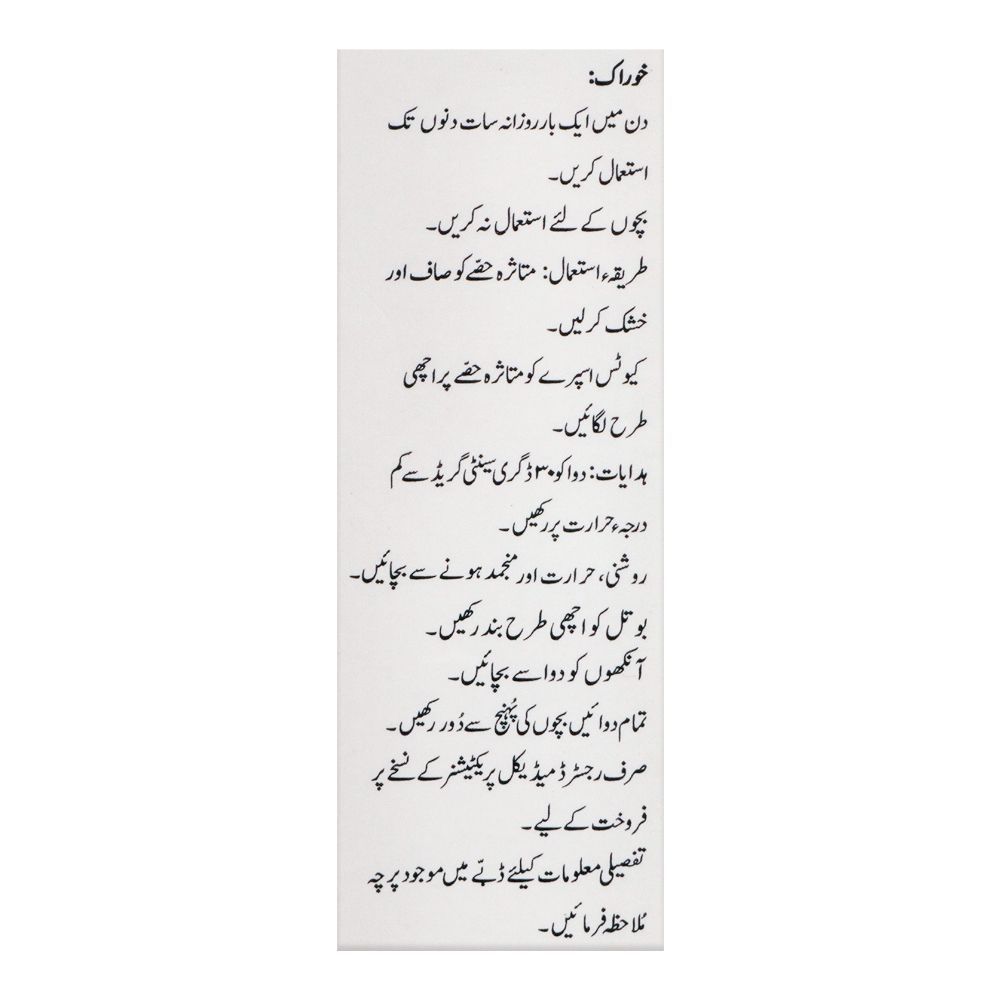 خوراک:
دن میں ایک بار روزانہ سات دنوں تک
استعمال کریں۔
بچوں کے لئے استعمال نہ کریں۔
طریقہء استعمال: متاثرہ حصّے کو صاف اور
خشک کرلیں۔
کیوٹس اسپرے کو متاثرہ حصّے پر اچھی
طرح لگائیں۔
ہدایات: دوا کو ۳۰ ڈگری سینٹی گریڈ سے کم
درجہء حرارت پر رکھیں۔
روشنی، حرارت اور منجمد ہونے سے بچائیں۔
بوتل کو اچھی طرح بند رکھیں۔
آنکھوں کو دوا سے بچائیں۔
تمام دوائیں بچوں کی پُہنچ سے دُور رکھیں۔
صرف رجسٹرڈ میڈیکل پریکٹیشنر کے نسخے پر
فروخت کے لیے۔
تفصیلی معلومات کیلئے ڈبّے میں موجود پرچہ
مُلاحظہ فرمائیں۔